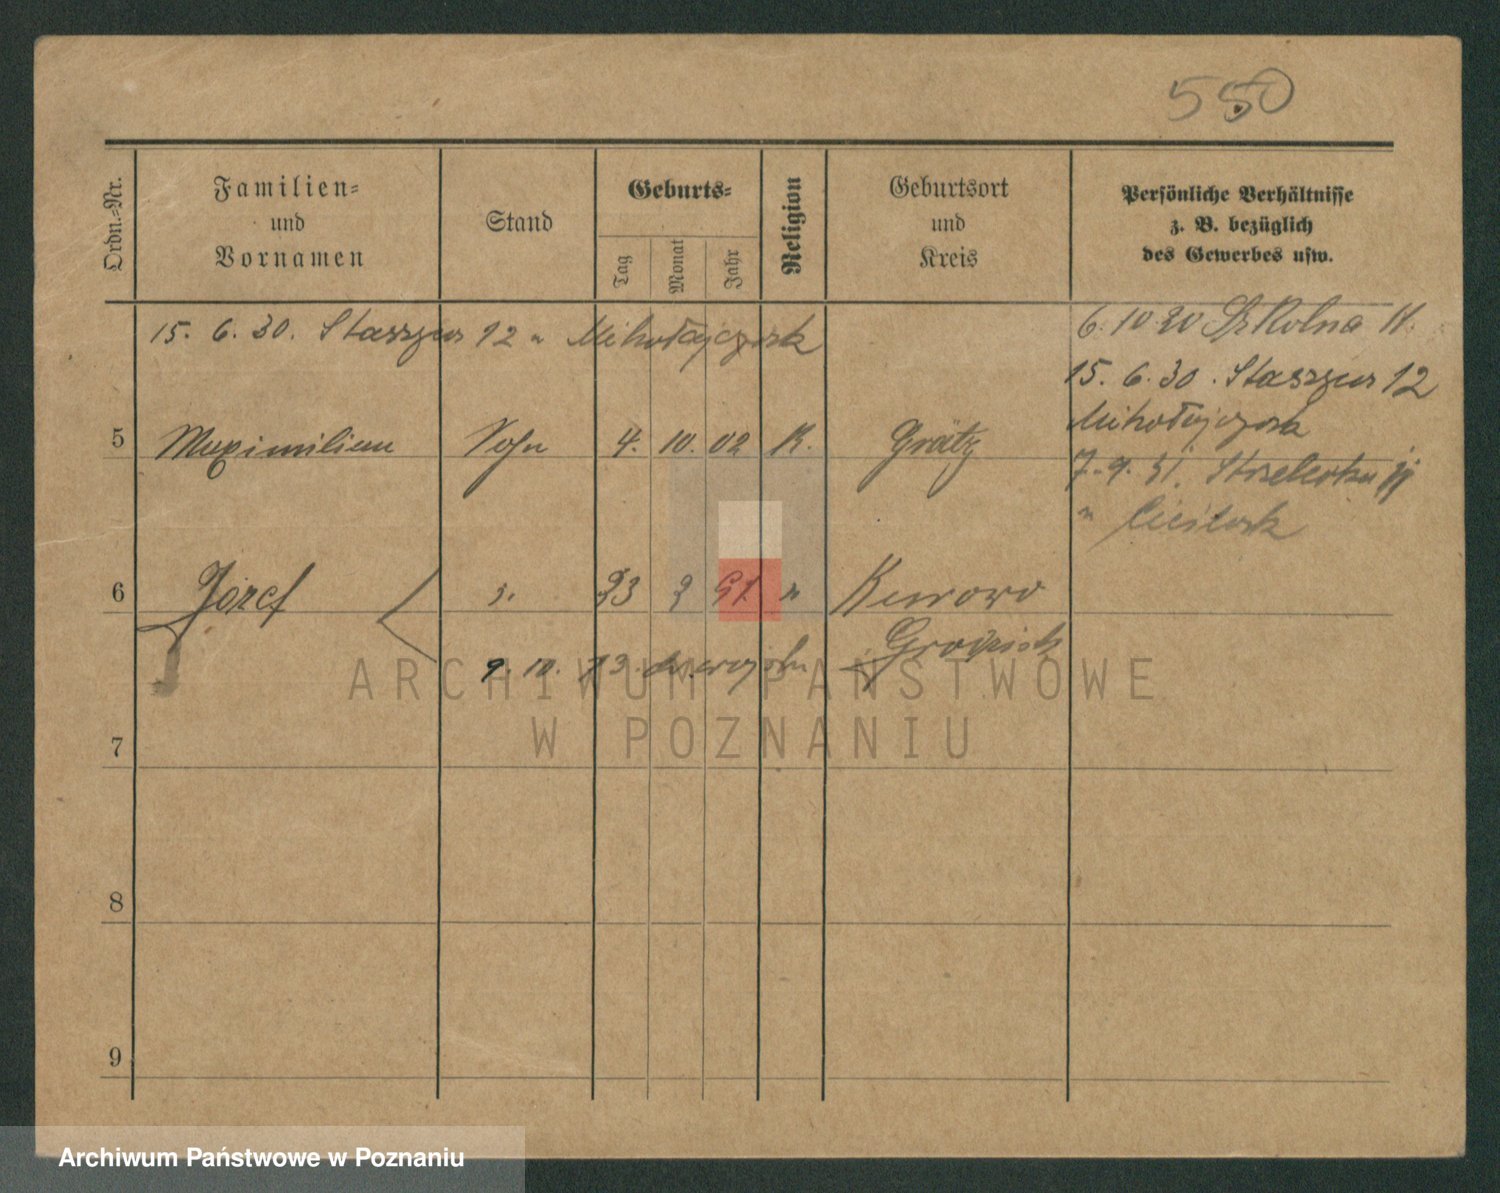 550
Ordn.-Nr.
Familien-
und
Vornamen
Stand
Geburts-
Tag
Monat
Jahr
Religion
Geburtsort
und
Kreis
Persönliche Verhältnisse
z. B. bezüglich
des Gewerbes usw.
6.10.20 Szkolna 11.
15. 6. 30. Staszyca 12 " Mikołajczak
15. 6. 30. Staszyca 12
Mikołajczak
5 Maximilian Sohn 4. 10. 02 K. Grätz
7. 9. 31. Strzelecka
" Cieślack
6 Józef s. 23 2 " Kurowo
9. 10.
Grodzisk
ARCHIWUM PAŃSTWOWE
W POZNANIU
7
8
9
Archiwum Państwowe w Poznaniu